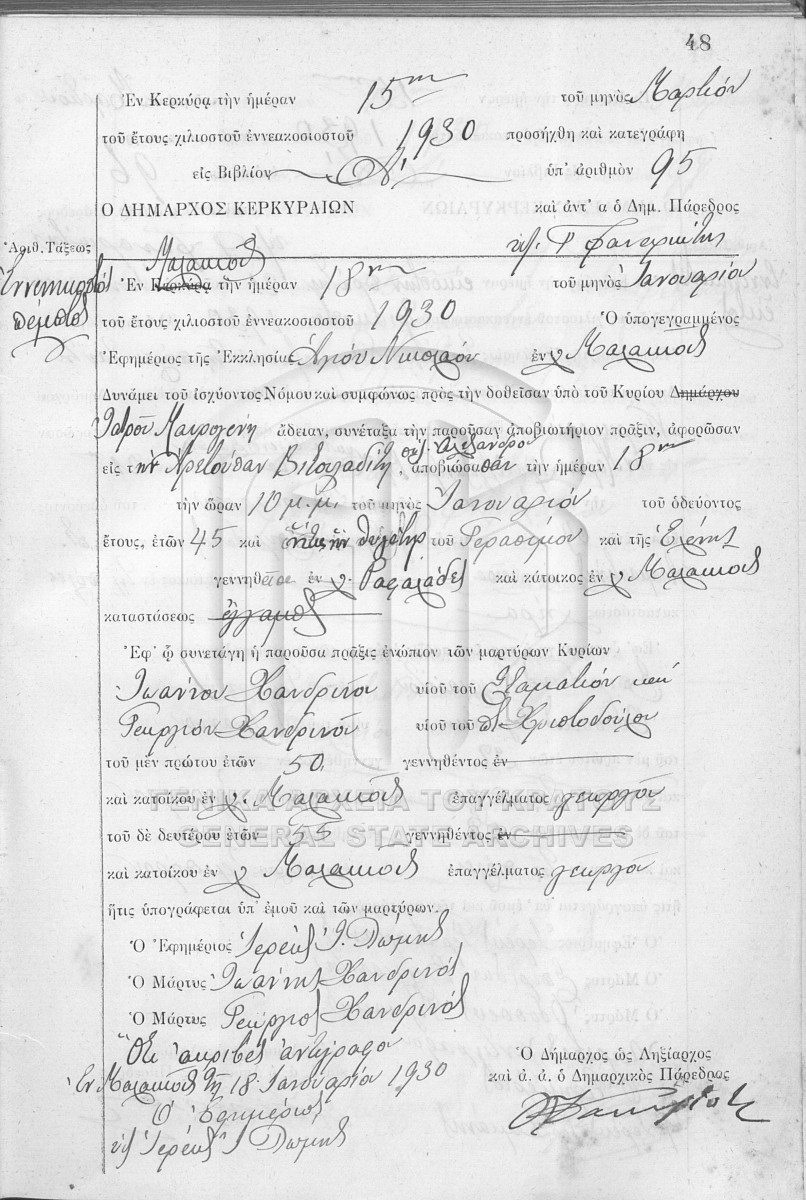 48
Ἐν Κερκύρᾳ τὴν ἡμέραν 15ην τοῦ μηνὸς Μαρτίου
τοῦ ἔτους χιλιοστοῦ ἐννεακοσιοστοῦ 1930 προσήχθη καὶ κατεγράφη
εἰς Βιβλίον Α' ὑπ' ἀριθμὸν 95
Ο ΔΗΜΑΡΧΟΣ ΚΕΡΚΥΡΑΙΩΝ καὶ ἀντ' α ὁ Δημ. Πάρεδρος
Ἀριθ. Τάξεως
Ἐννενηκοστὸς πέμπτος
Ἐν Κερκύρᾳ τὴν ἡμέραν 18ην τοῦ μηνὸς Ἰανουαρίου
τοῦ ἔτους χιλιοστοῦ ἐννεακοσιοστοῦ 1930 Ὁ ὑπογεγραμμένος
Ἐφημέριος τῆς Ἐκκλησίας Ἁγίου Νικολάου ἐν χ.
Δυνάμει τοῦ ἰσχύοντος Νόμου καὶ συμφώνως πρὸς τὴν δοθεῖσαν ὑπὸ τοῦ Κυρίου Δημάρχου
Ἰατροῦ ἄδειαν, συνέταξα τὴν παροῦσαν ἀποβιωτήριον πρᾶξιν, ἀφορῶσαν
εἰς τὴν Ἀρετοῦσαν συζ. Ἀλεξάνδρου, ἀποβιώσασαν τὴν ἡμέραν 18ην
τὴν ὥραν 10 μ.μ. τοῦ μηνὸς Ἰανουαρίου τοῦ ὁδεύοντος
ἔτους, ἐτῶν 45 καὶ ἥτις ἦν θυγάτηρ τοῦ Γερασίμου καὶ τῆς Ἑλένης
ἐν χ. καὶ κάτοικος ἐν χ.
καταστάσεως ἔγγαμος
Ἐφ' ᾧ συνετάγη ἡ παροῦσα πρᾶξις ἐνώπιον τῶν μαρτύρων Κυρίων
Ἰωάννου Χανδρινοῦ υἱοῦ τοῦ Σταματίου καὶ
Γεωργίου Χανδρινοῦ υἱοῦ τοῦ Χριστοδούλου
τοῦ μὲν πρώτου ἐτῶν 50 γεννηθέντος ἐν
καὶ κατοίκου ἐν χ. ἐπαγγέλματος γεωργοῦ
ΓΕΝΙΚΑ ΑΡΧΕΙΑ ΤΟΥ ΚΡΑΤΟΥΣ
τοῦ δὲ δευτέρου ἐτῶν 55 γεννηθέντος ἐν
GENERAL STATE ARCHIVES
καὶ κατοίκου ἐν χ. ἐπαγγέλματος γεωργοῦ
ἥτις ὑπογράφεται ὑπ' ἐμοῦ καὶ τῶν μαρτύρων.
Ὁ Ἐφημέριος Ἱερεὺς
Ὁ Μάρτυς Ἰωάννης Χανδρινός
Ὁ Μάρτυς Γεώργιος Χανδρινός
Ὅτι ἀκριβὲς ἀντίγραφον
τῇ 18 Ἰανουαρίου 1930
Ὁ Ἐφημέριος
Ἱερεὺς
Ὁ Δήμαρχος ὡς Ληξίαρχος
καὶ ἀ. ἀ. ὁ Δημαρχικὸς Πάρεδρος